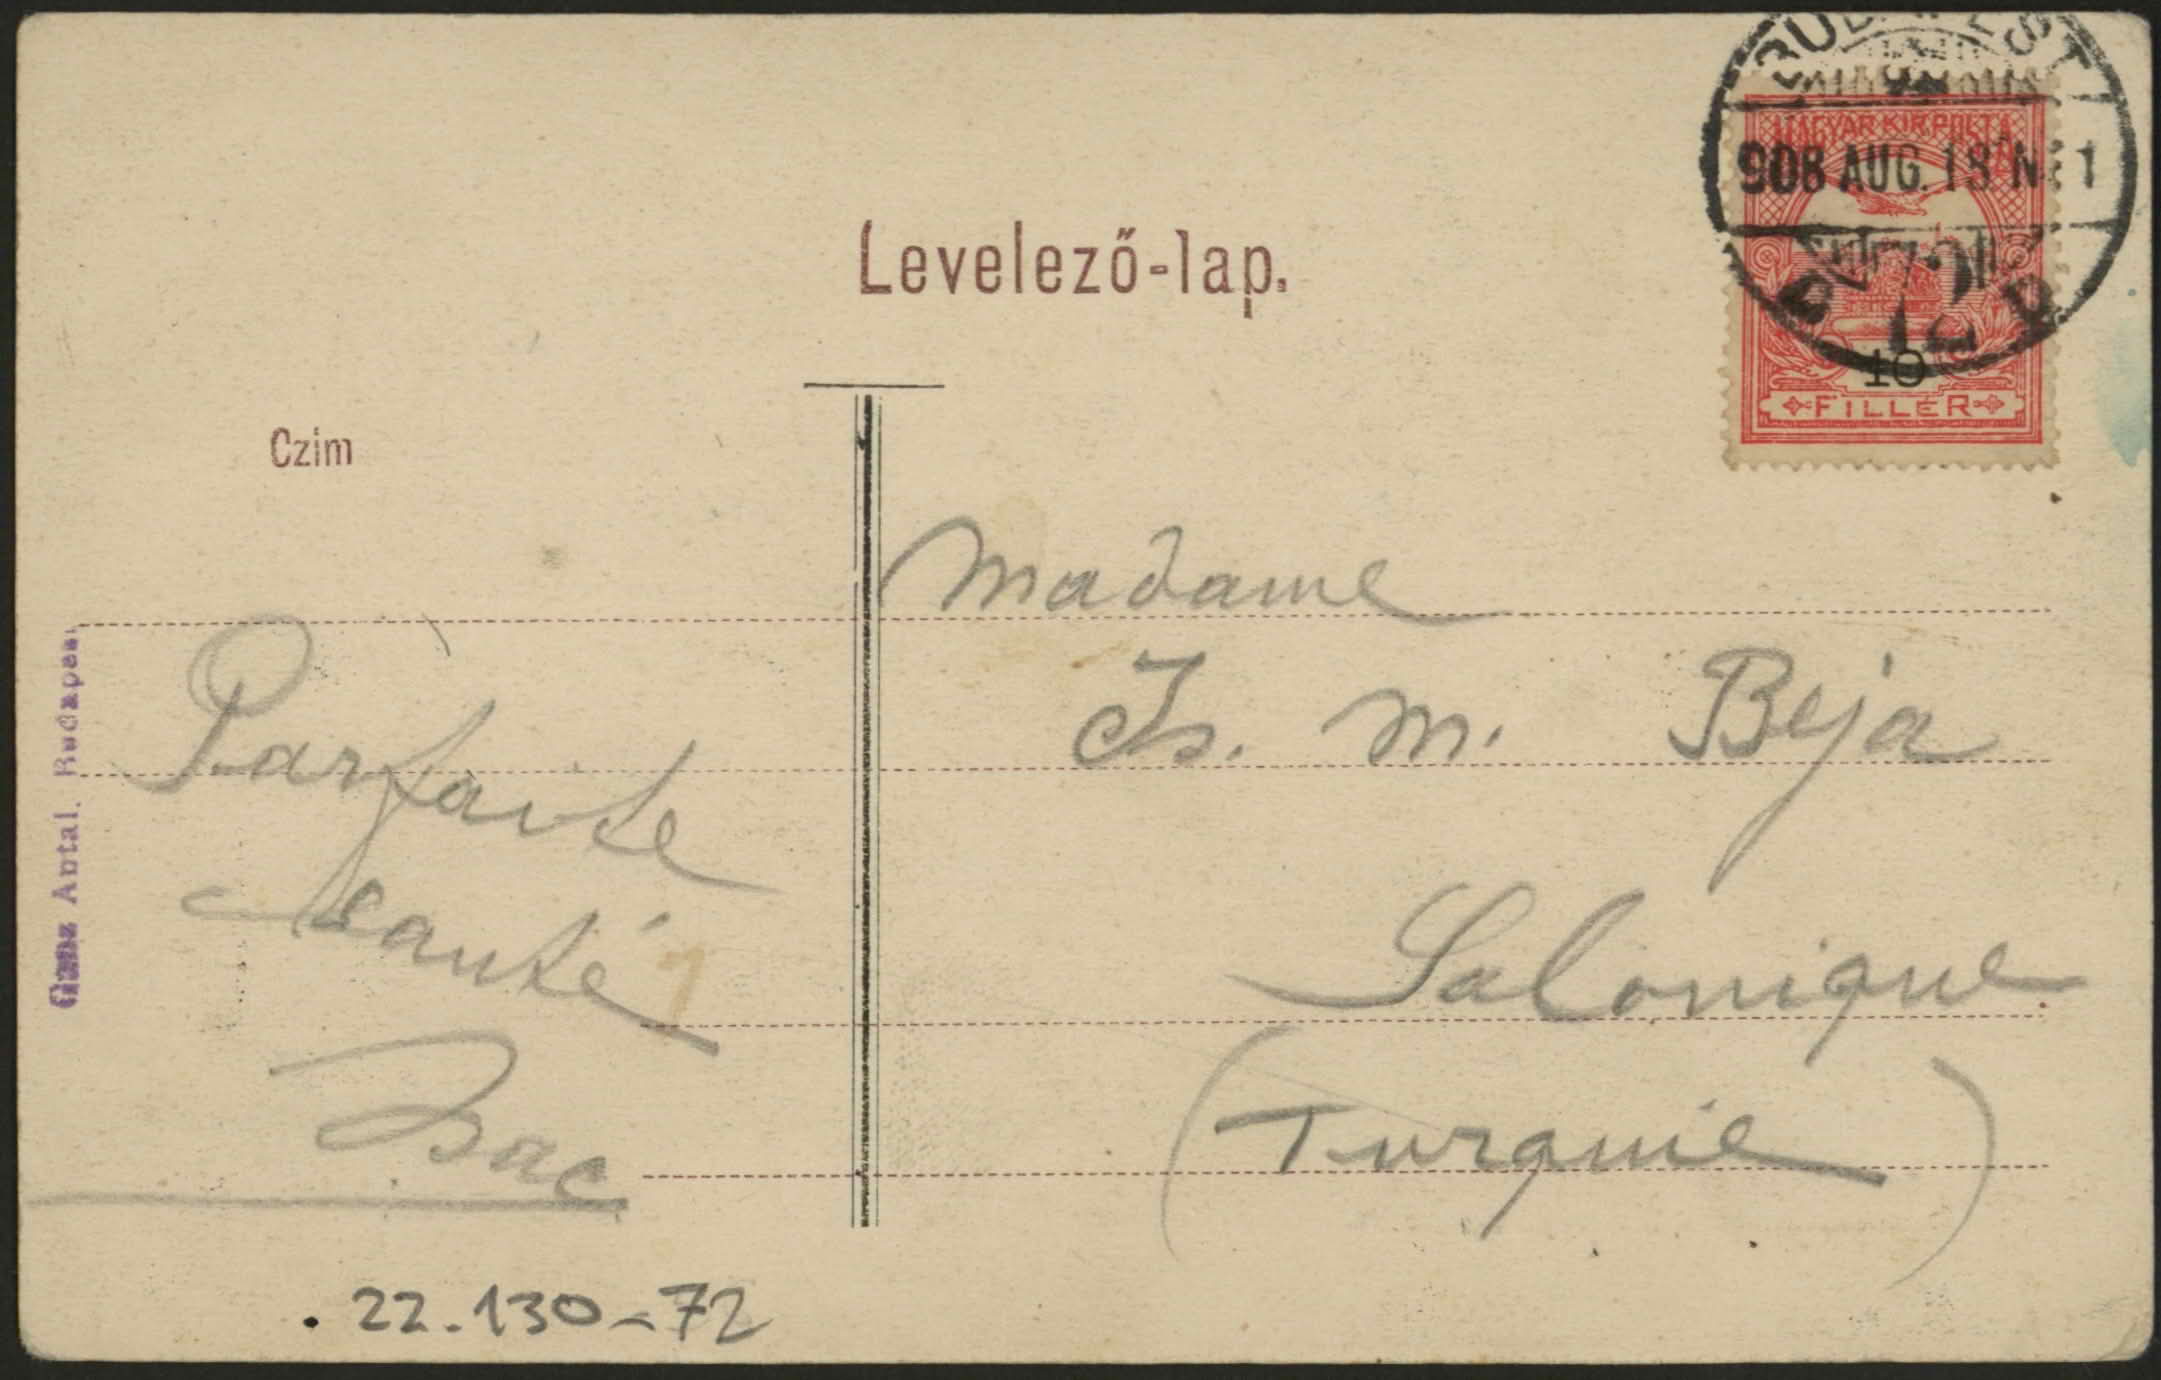 Levelező-lap.
Czim
BUDAPEST
908 AUG. 18 N 1
MAGYAR KIR. POSTA
10
FILLÉR
Madame
Is. M. Beja
Salonique
(Turquie)
Parfaite
santé
Isac
22.130-72
Ganz Antal. Budapest